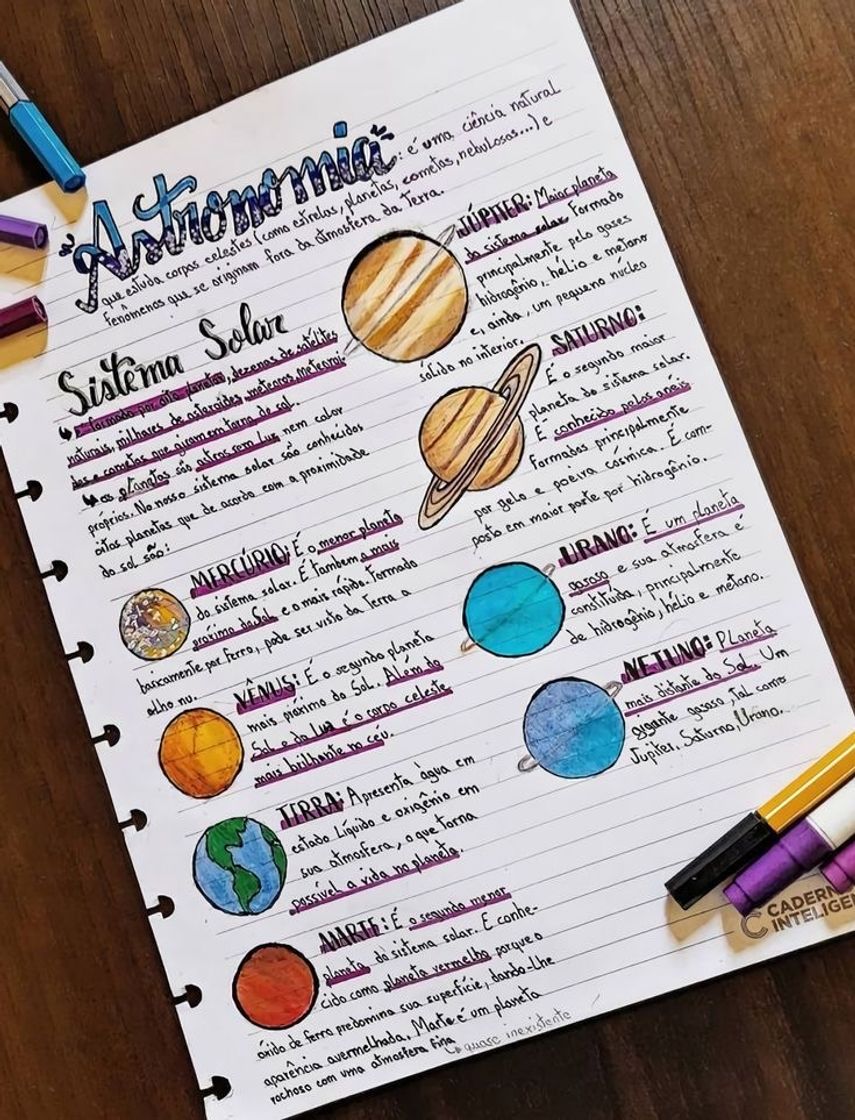 Astronomia: é uma ciência natural
que estuda corpos celestes (como estrelas, planetas, cometas, nebulosas...) e
fenômenos que se originam fora da atmosfera da Terra.
Sistema Solar
↳ É formado por oito planetas, dezenas de satélites
naturais, milhares de asteroides, meteoros, meteoroi-
des e cometas que giram em torno do sol.
↳ os planetas são astros sem luz nem calor
próprios. No nosso sistema solar são conhecidos
oitos planetas que de acordo com a proximidade
do sol são:
MERCÚRIO: É o menor planeta
do sistema solar. É também o mais
próximo do Sol e o mais rápido. Formado
basicamente por ferro, pode ser visto da Terra a
olho nu.
VÊNUS: É o segundo planeta
mais próximo do Sol. Além do
Sol e da Lua é o corpo celeste
mais brilhante no céu.
TERRA: Apresenta água em
estado líquido e oxigênio em
sua atmosfera, o que torna
possível a vida no planeta.
MARTE: É o segundo menor
planeta do sistema solar. É conhe-
cido como planeta vermelho porque o
óxido de ferro predomina sua superfície, dando-lhe
aparência avermelhada. Marte é um planeta
rochoso com uma atmosfera fina
↳ quase inexistente
JÚPITER: Maior planeta
do sistema solar. Formado
principalmente pelo gases
hidrogênio, hélio e metano
e, ainda, um pequeno núcleo
sólido no interior.
SATURNO:
É o segundo maior
planeta do sistema solar.
É conhecido pelos anéis
formados principalmente
por gelo e poeira cósmica. É com-
posto em maior parte por hidrogênio.
URANO: É um planeta
gasoso e sua atmosfera é
constituída, principalmente
de hidrogênio, hélio e metano.
NETUNO: Planeta
mais distante do Sol. Um
gigante gasoso, tal como
Júpiter, Saturno, Urano.
CADERNO
INTELIGEN